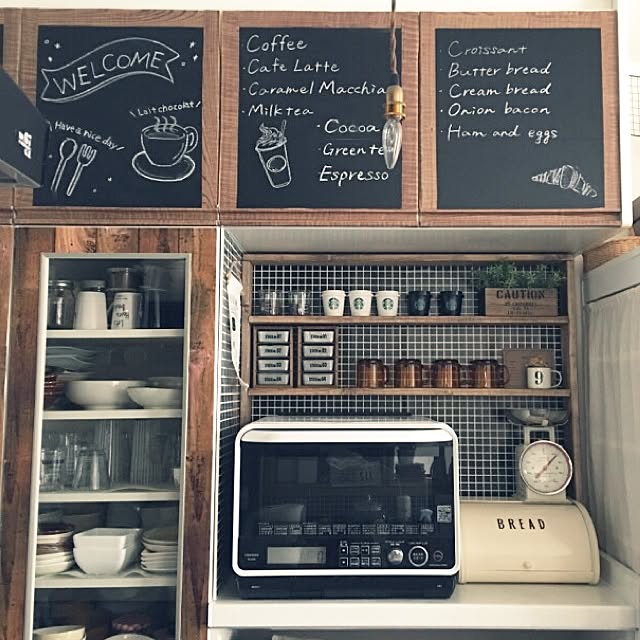 WELCOME
Lait chocolat!
Have a nice day!
Coffee
Cafe Latte
Caramel Macchia
Milk tea
Cocoa
Green te
Espresso
Croissant
Butter bread
Cream bread
Onion bacon
Ham and eggs
CAUTION
9
BREAD